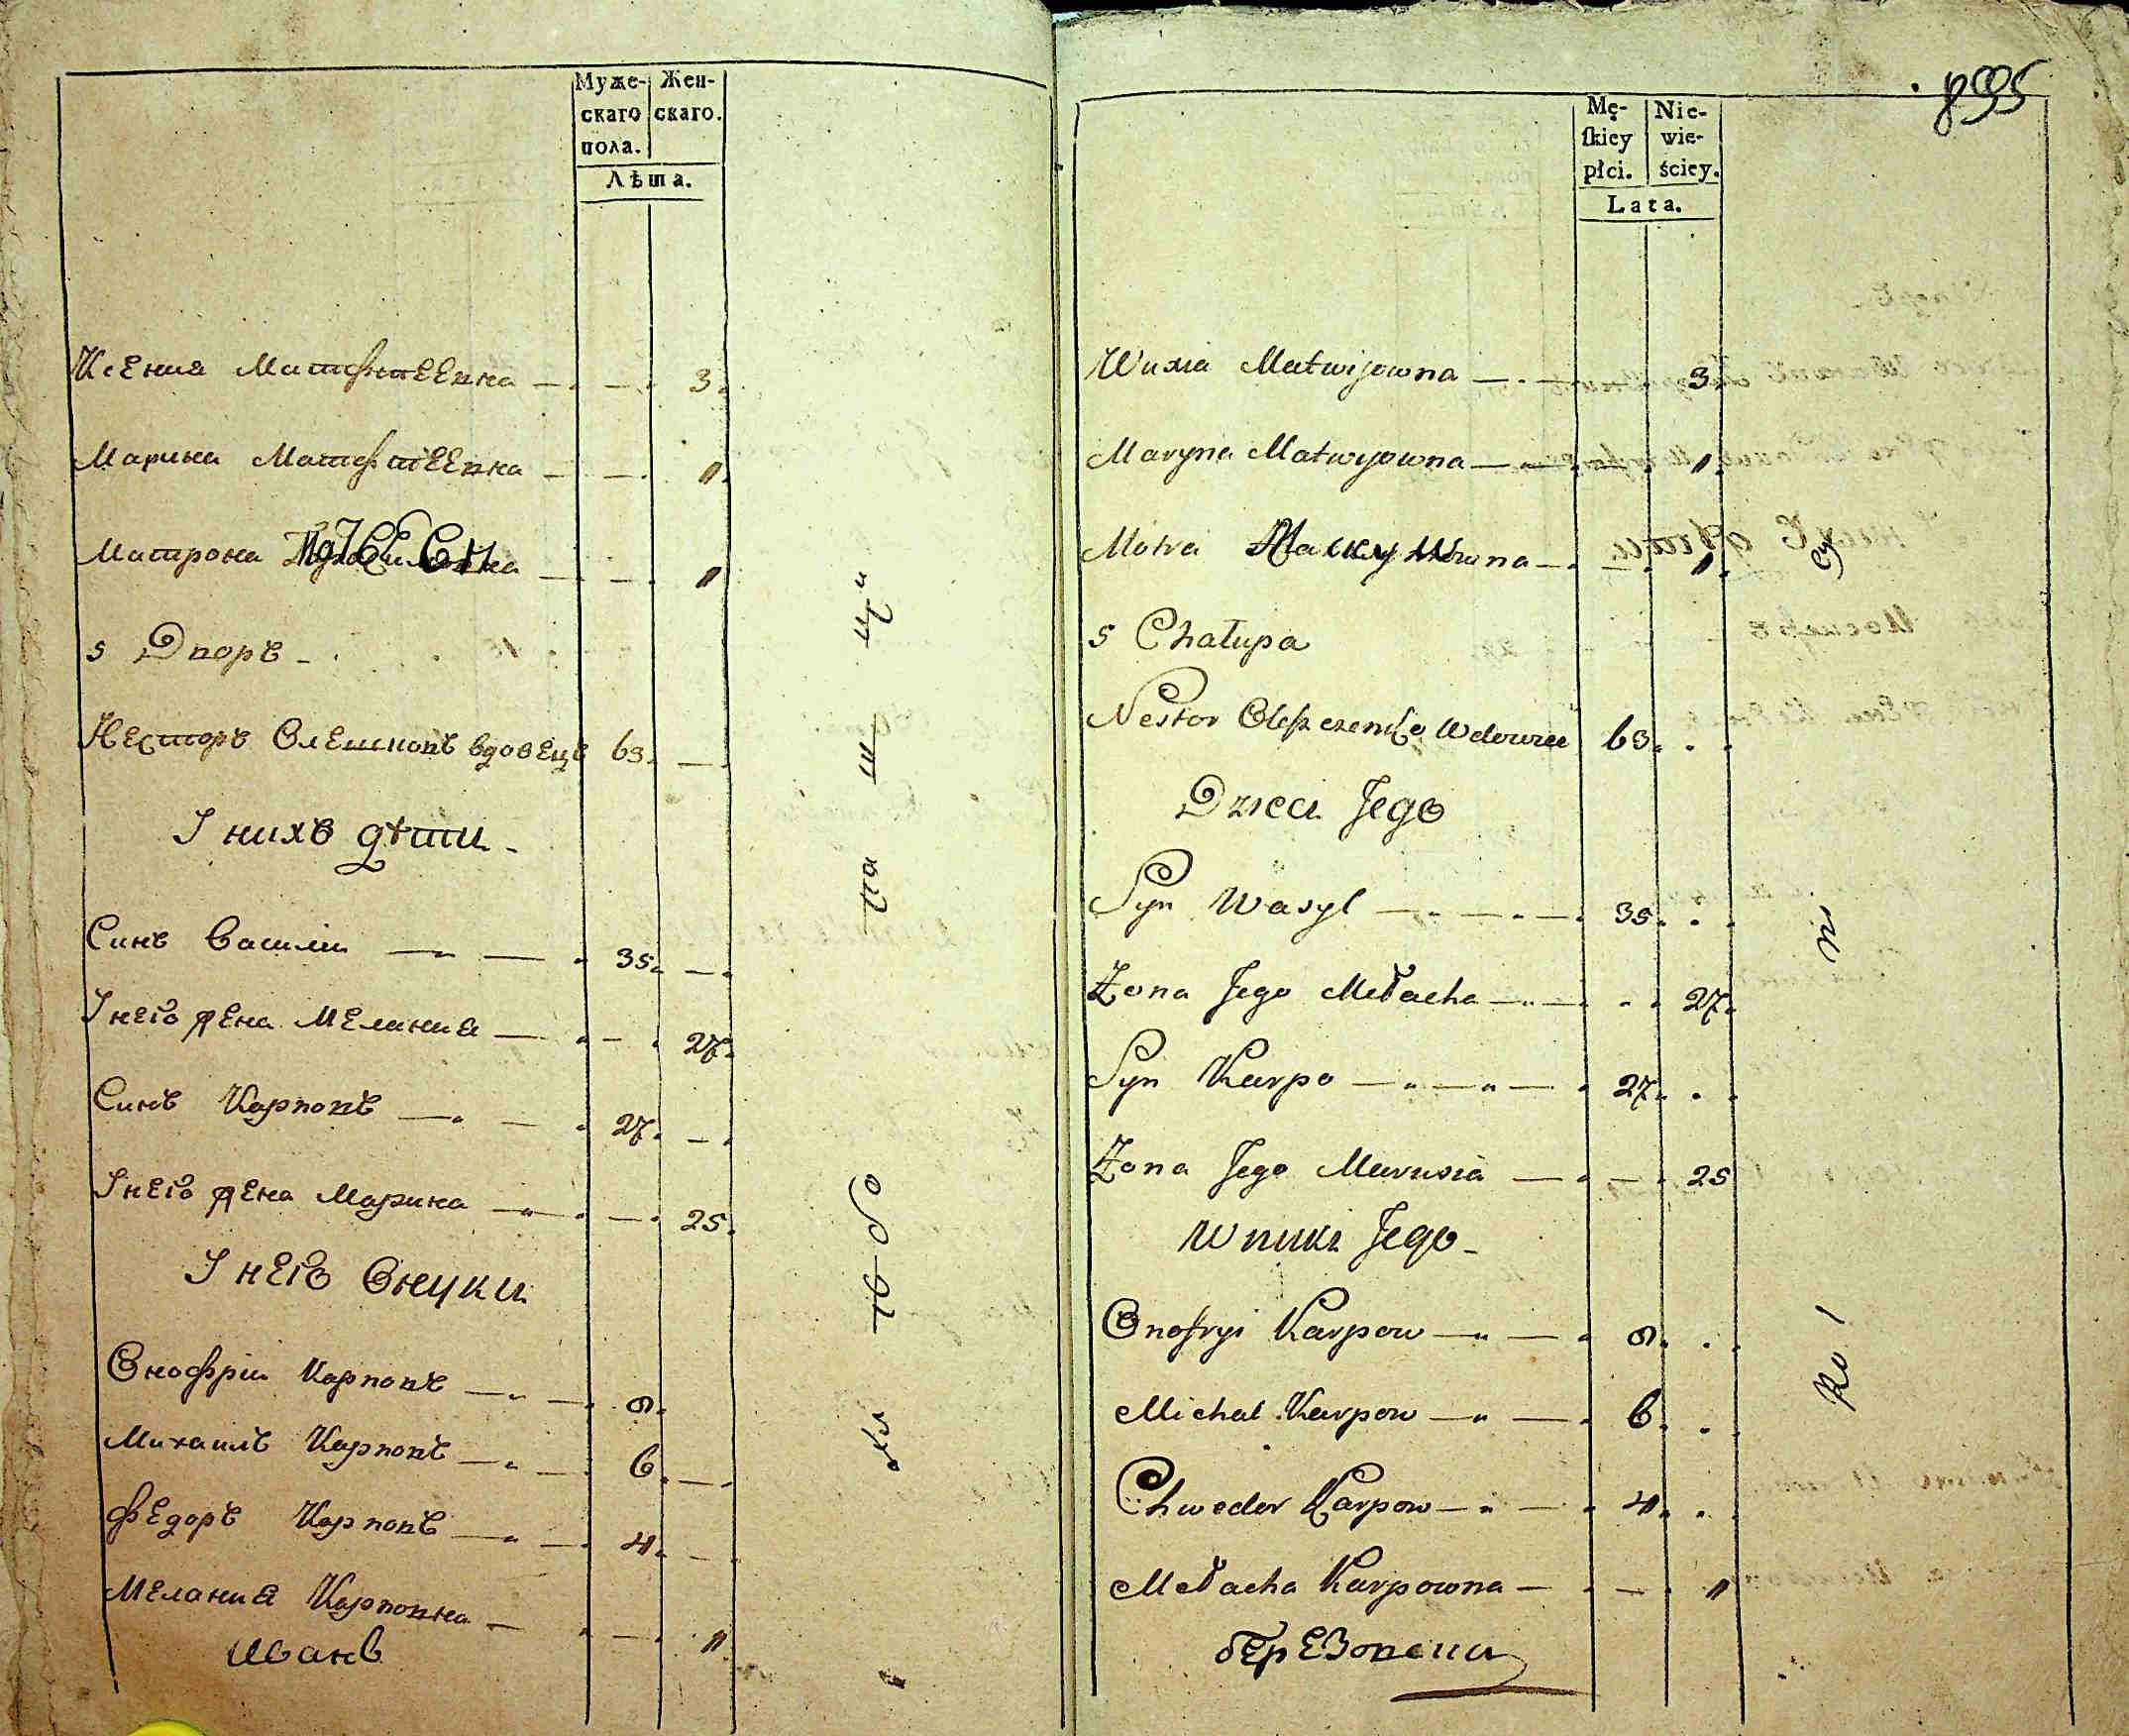 Муже-
скаго
пола.
Жен-
скаго.
Лѣта.
Ксения Матфтеевна — — 3.
Марина Матфтеевна — — 11.
Матрона — — 11
5 Дворъ
Несторъ Олешковъ вдовецъ 63. —
У нихъ дѣти
Синъ Василии — — 35. —
У него жена Мелания — — 27.
Синъ Карповъ — — 27. —
У него жена Марина — — 25.
У него Внуки
Онофрии Карповъ — — 8.
Михаилъ Карповъ — — 6. —
Федоръ Карповъ — — 4. —
Мелания Карповна — — 11
Иванъ
895
Mę-
skiey
płci.
Nie-
wie-
ściey.
Lata.
Wuxia Matwijowna — 3.
Maryna Matwyjowna — 11.
Motra — 11.
5 Chałupa
Nestor Oleszczenko Wdowiec 63.
Dzieci Jego
Syn Wasyl — — 35.
Zona Jego Mełacha — 27.
Syn Karpo — — 27.
Zona Jego Marusia — — 25
Wnuki Jego
Onofryi Karpow — — 8.
Michal Karpow — — 6.
Chweder Karpow — — 4.
Mełacha Karpowna — — 11